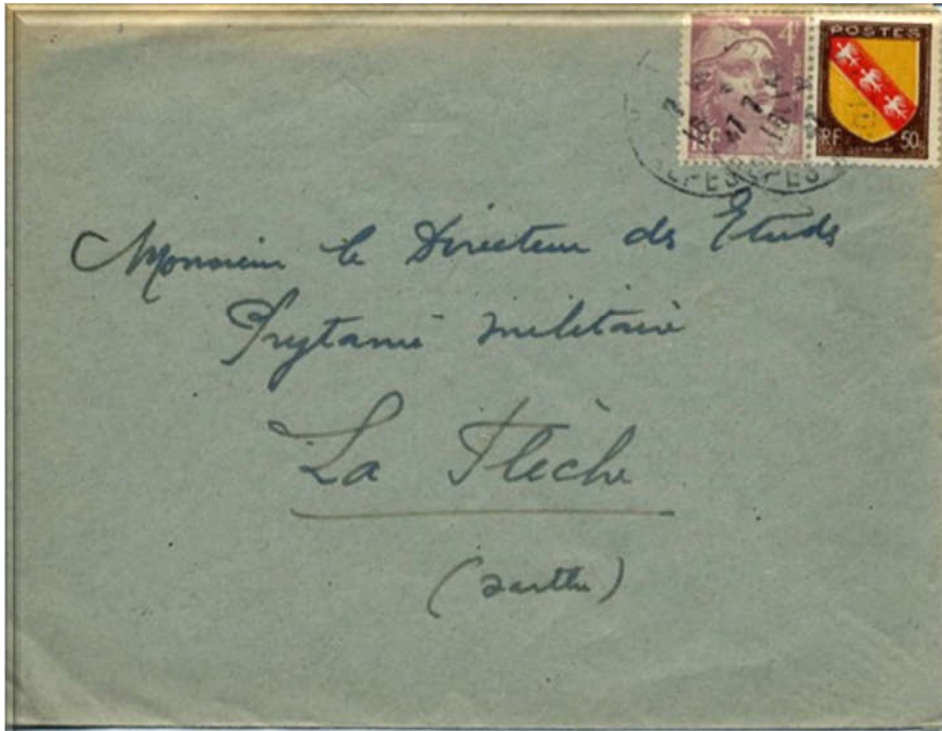 4F
POSTES
RF
50
18
7
47
18
7
Monsieur le Directeur des Etudes
Prytanée militaire
La Flèche
(Sarthe)